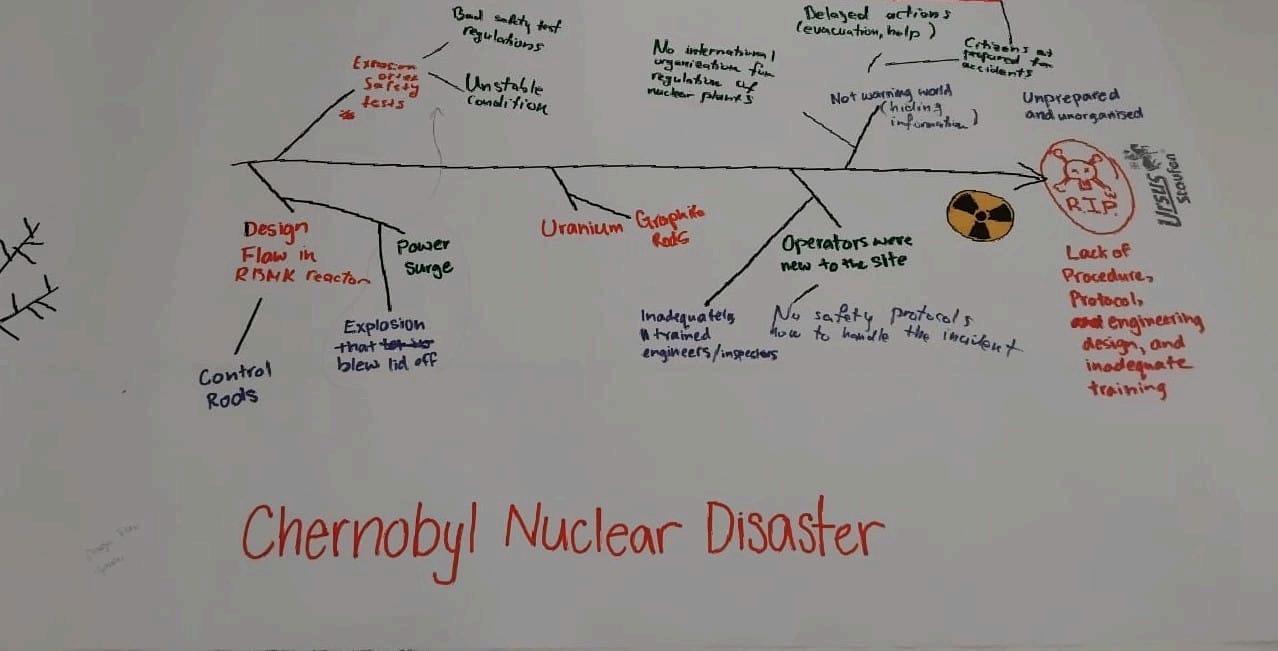 Bad safety test
regulations
Explosion
after
Safety
tests
Unstable
condition
No international
organisation for
regulation of
nuclear plants
Delayed actions
(evacuation, help)
Citizens
prepared for
accidents
Not warning world
(hiding
information)
Unprepared
and unorganised
R.I.P.
Ursus
Design
Flaw in
RBMK reactor
Control
Rods
Power
surge
Explosion
that
blew lid off
Uranium
Graphite
Rods
Operators were
new to the site
Inadequately
trained
engineers/inspectors
No safety protocols
how to handle the incident
Lack of
Procedure,
Protocol,
engineering
design, and
inadequate
training
Chernobyl Nuclear Disaster